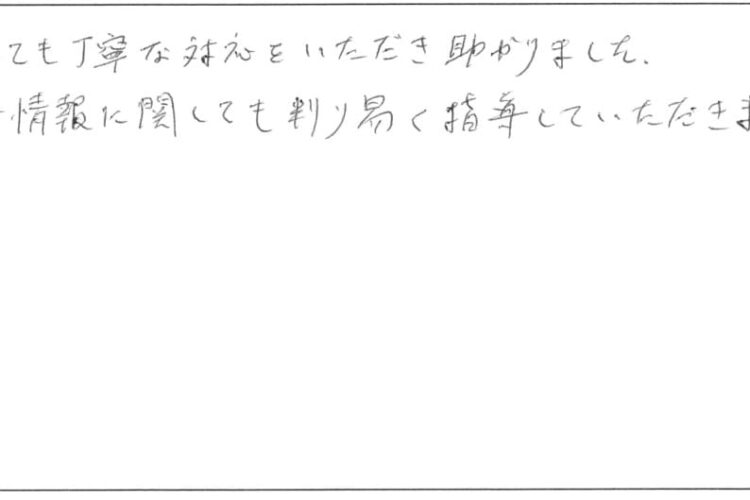 ても丁寧な対応をいただき助かりました。
情報に関しても判り易く指導していただきま